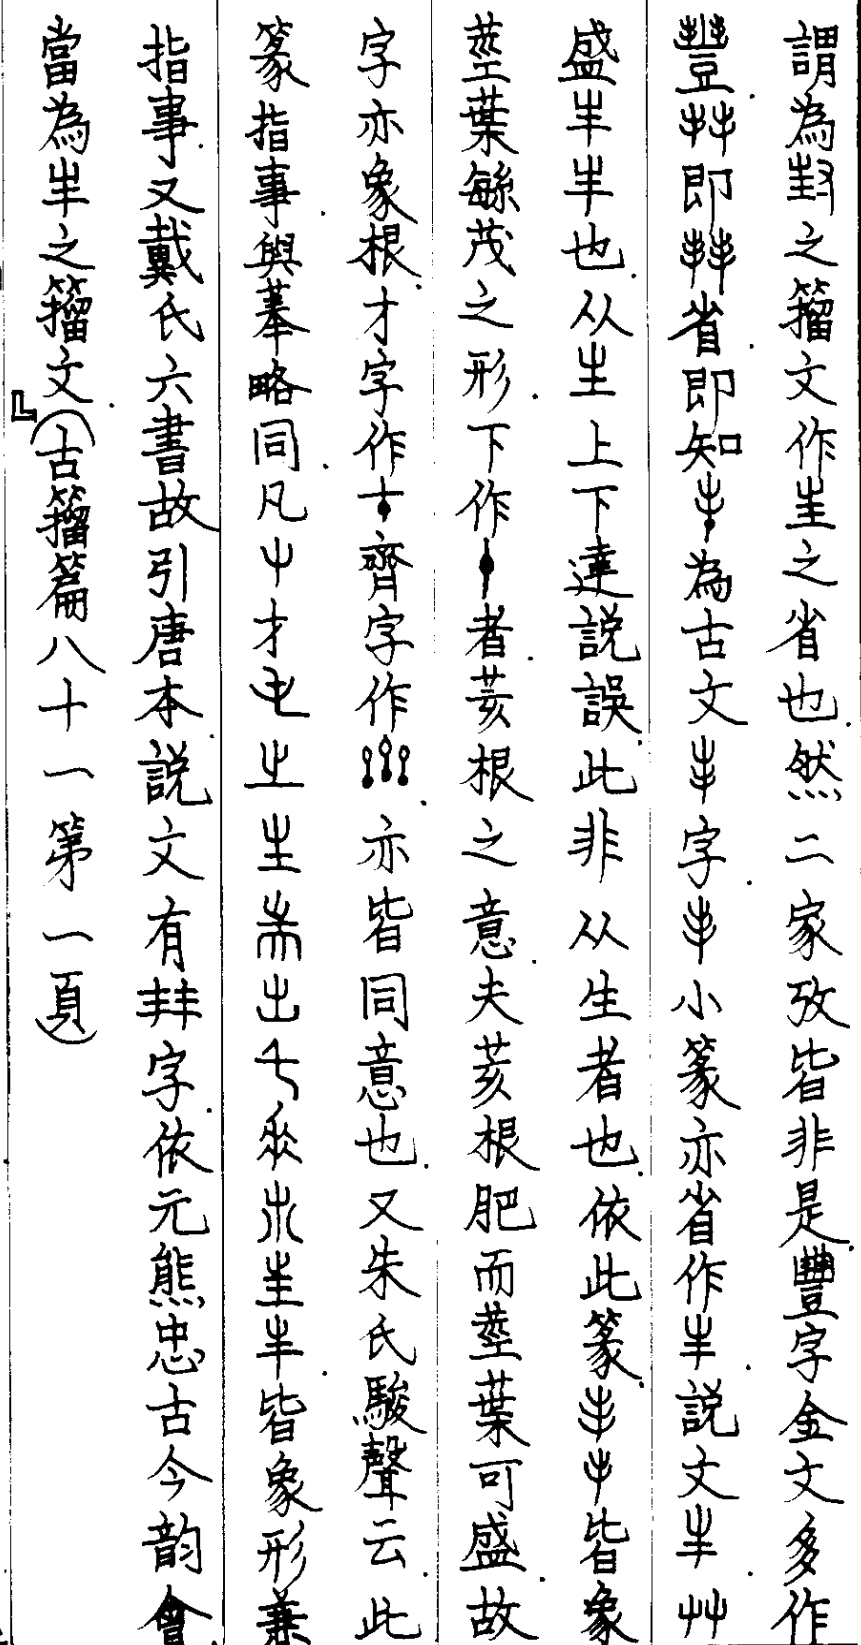 謂為𡉘之籀文作𡴀之省也然二家攷皆非是豐字金文多作
豐𦬇即𦱶省即知丰為古文丰字丰小篆亦省作丰説文丰艸
盛丰丰也从生上下達説誤此非从生者也依此篆丰屮皆象
莖葉緐茂之形下作者荄根之意夫荄根肥而莖葉可盛故
字亦象根才字作齊字作亦皆同意也又朱氏駿聲云此
篆指事與𦸐略同凡屮才乇㞢生耑出𠂹𣎵丰皆象形兼
指事又戴氏六書故引唐本説文有𦍌字依元熊忠古今韵會
當為丰之籀文』（古籀篇八十一第一頁）